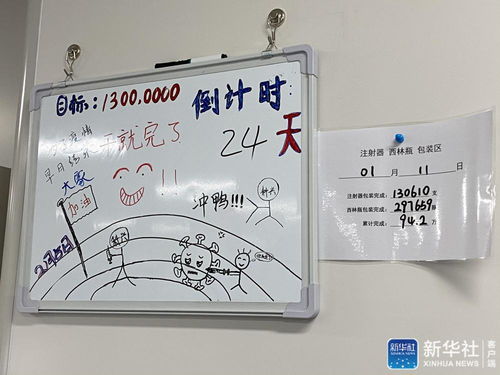 目标:1300.0000
倒计时:
24天
疫情
早日
就完了
!!
大家
加油
冲鸭!!!
科兴
科兴
2月5日
注射器 西林瓶 包装区
01 月 11 日
注射器包装完成:130610支
西林瓶包装完成:297659瓶
累计完成:94.2万
新华社
XINHUA NEWS
客户端